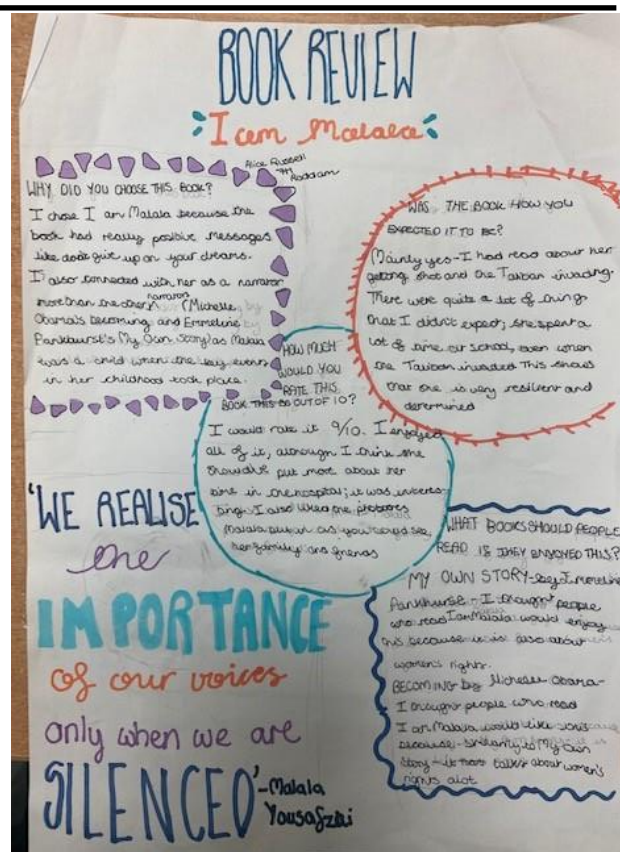 BOOK REVIEW
I am Malala
Alice Russell
7H
Roddam
WHY DID YOU CHOOSE THIS BOOK?
I chose I am Malala because the
book had really positive messages
like don't give up on your dreams.
I also connected with her as a narrator
more than the other narrators (Michelle
Obama's Becoming and Emmeline
Pankhurst's My Own Story) as Malala
was a child when the key events
in her childhood took place.
WAS THE BOOK HOW YOU
EXPECTED IT TO BE?
Mainly yes - I had read about her
getting shot and the Taliban invading.
There were quite a lot of things
that I didn't expect; she spent a
lot of time at school, even when
the Taliban invaded This shows
that she is very resilient and
determined
HOW MUCH
WOULD YOU
RATE THIS
BOOK OUT OF 10?
I would rate it 9/10. I enjoyed
all of it, although I think she
should've put more about her
time in the hospital; it was interes-
ting. I also liked the pictures
Malala put in as you could see
her family and friends
'WE REALISE
the
IMPORTANCE
of our voices
only when we are
SILENCED' - Malala
Yousafzai
WHAT BOOKS SHOULD PEOPLE
READ IF THEY ENJOYED THIS?
MY OWN STORY - by Emmeline
Pankhurst - I thought people
who read I am Malala would enjoy
this because it is also about
women's rights.
BECOMING by Michelle Obama -
I thought people who read
I am Malala would like this
because - similarly to My Own
Story - it talks about women's
rights alot